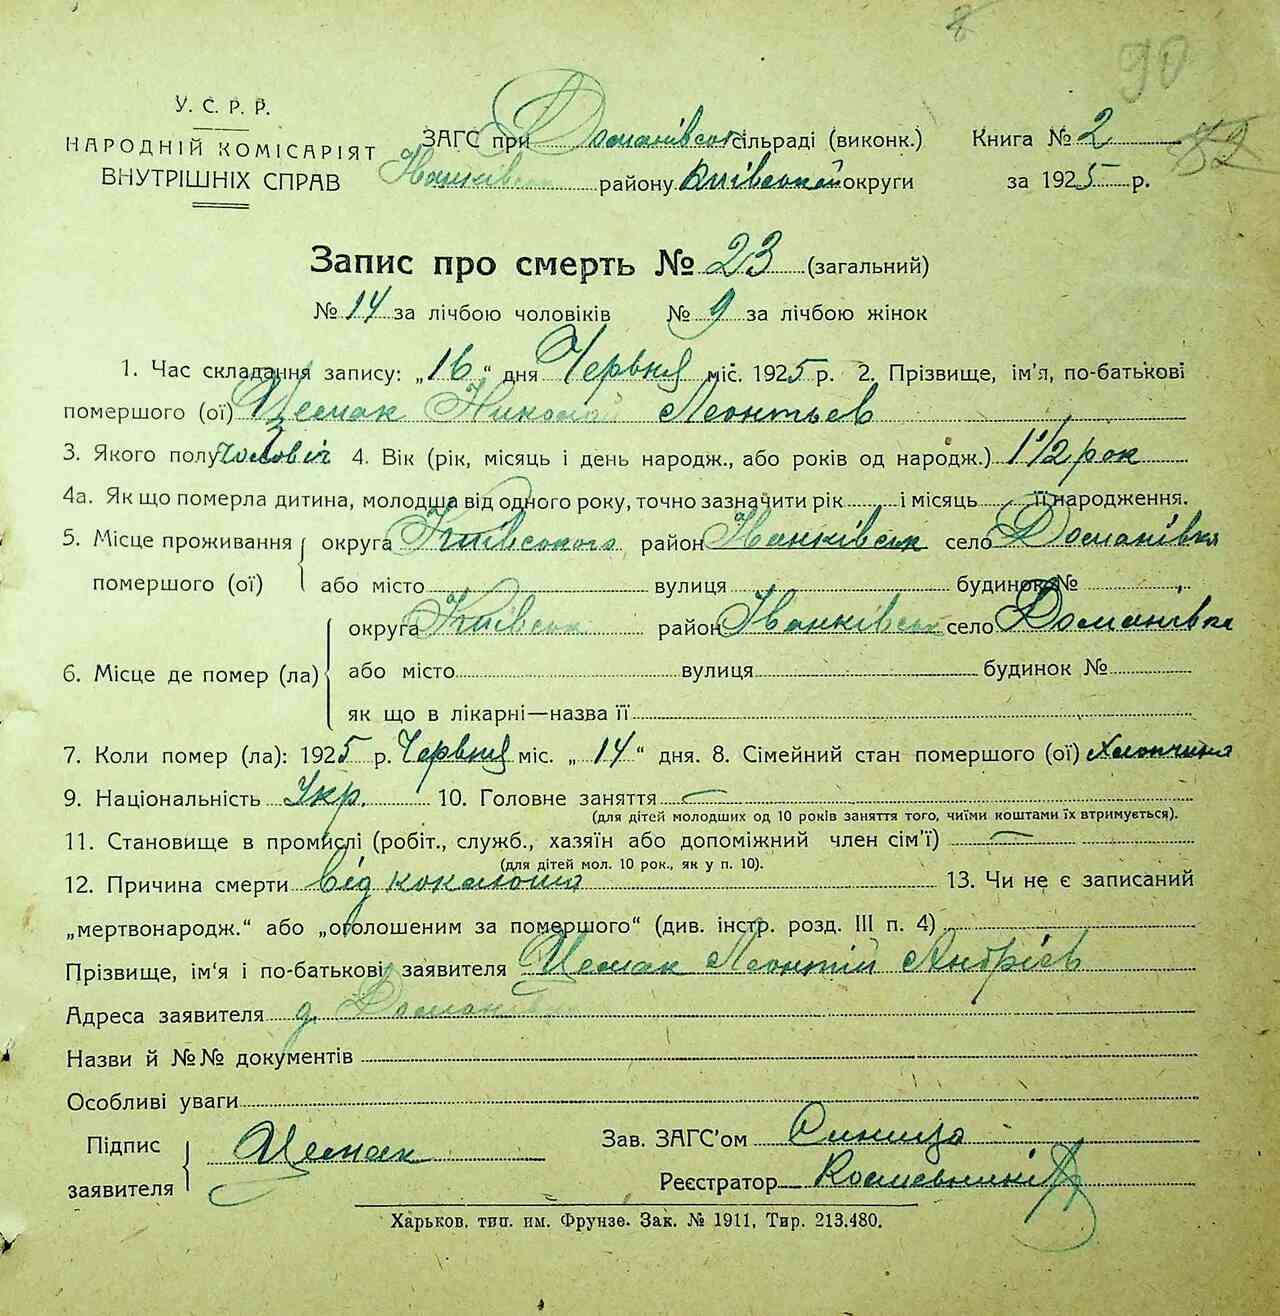 90
82
У. С. Р. Р.
НАРОДНІЙ КОМІСАРІЯТ
ВНУТРІШНІХ СПРАВ
ЗАГС при Доманівськ сільраді (виконк.)
Іванківськ району Київської округи
Книга № 2
за 1925 р.
Запис про смерть № 23 (загальний)
№ 14 за лічбою чоловіків № 9 за лічбою жінок
1. Час складання запису: „16“ дня Червня міс. 1925 р. 2. Прізвище, ім'я, по-батькові
помершого (ої) Цемак Николай Леонтьев
3. Якого полу чоловіч 4. Вік (рік, місяць і день народж., або років од народж.) 1 1/2 рок
4а. Як що померла дитина, молодша від одного року, точно зазначити рік і місяць її народження.
5. Місце проживання помершого (ої) округа Київського район Іванківськ село Доманівка
або місто вулиця будинок №
6. Місце де помер (ла) округа Київськ район Іванківськ село Доманівка
або місто вулиця будинок №
як що в лікарні—назва її
7. Коли помер (ла): 1925 р. Червня міс. „14“ дня. 8. Сімейний стан помершого (ої) хлопчина
9. Національність Укр. 10. Головне заняття —
(для дітей молодших од 10 років заняття того, чиїми коштами їх втримується).
11. Становище в промислі (робіт., служб., хазяїн або допоміжний член сім'ї) —
(для дітей мол. 10 рок., як у п. 10).
12. Причина смерти від коклюша 13. Чи не є записаний
„мертвонародж.“ або „оголошеним за помершого“ (див. інстр. розд. III п. 4)
Прізвище, ім'я і по-батькові заявителя Цемак Леонтій Андріев
Адреса заявителя д. Доманівка
Назви й №№ документів
Особливі уваги
Підпис заявителя Цемак
Зав. ЗАГС'ом Синица
Реєстратор
Харьков. тип. им. Фрунзе. Зак. № 1911, Тир. 213.480.